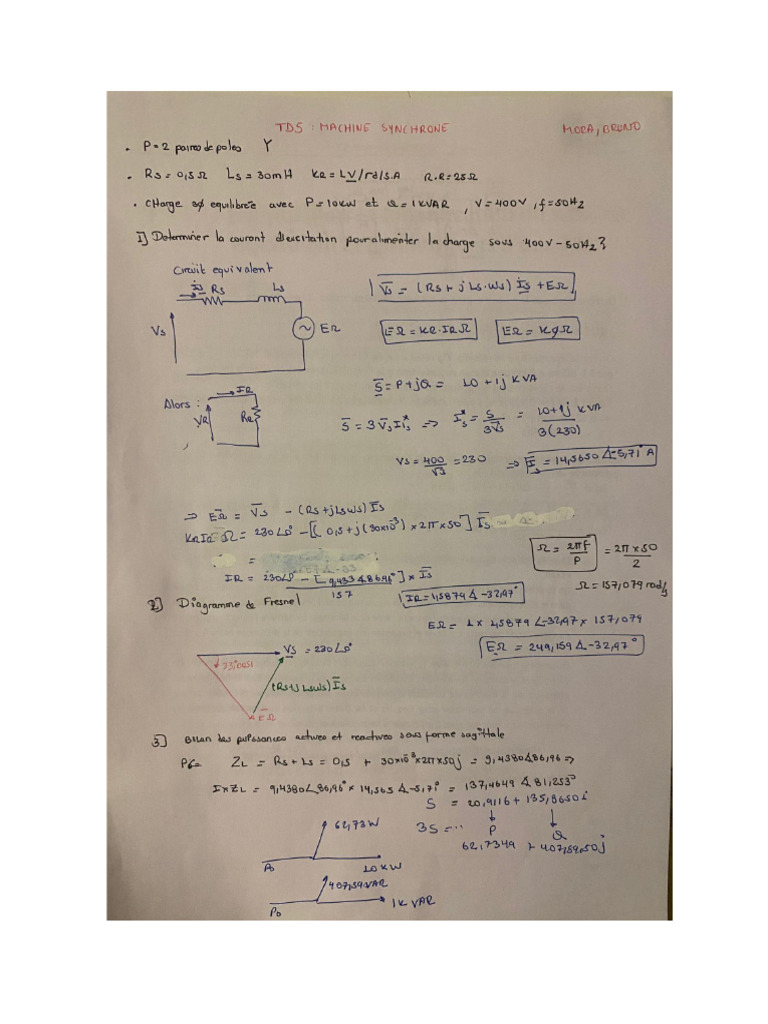 TD5 : MACHINE SYNCHRONE MORA, BRUNO
• P = 2 paires de poles Y
• Rs = 0,5 Ω Ls = 30mH KR = 1V/rd/s.A R.R = 25Ω
• Charge equilibrée avec P = 10KW et Q = 1KVAR , V = 400V , f = 50Hz
1] Determiner la courant d'excitation pour alimenter la charge sous 400V - 50Hz?
Circuit equivalent
is Rs Ls
Vs
EΩ
V̄s = (Rs + j Ls.ws) Īs + EΩ
EΩ = KR.IR Ω
EΩ = KφΩ
Alors :
IR
VR
RR
S̄ = P + jQ = 10 + 1j KVA
S̄ = 3 V̄s Is* => Is* = S / 3V̄s = 10+1j KVA / 3(230)
Vs = 400/√3 = 230 => Īs = 14,5650 ∡-5,71° A
=> EΩ = V̄s - (Rs + jLsws) Īs
KR IR Ω = 230∠0° - [( 0,5 + j (30x10⁻³) x 2π x 50] Īs
=
Ω = 2πf / P = 2π x 50 / 2
Ω = 157,079 rad/s
IR = 230∠0° - [9,433∡86,96°] x Īs / 157
IR = 1,5879 ∡ -32,97°
2] Diagramme de Fresnel
EΩ = 1 x 1,5879 ∠-32,97 x 157,079
EΩ = 249,159 ∡ -32,97°
Vs = 230∠0°
(Rs + j Lsws) Īs
EΩ
3] Bilan des puissances actives et reactives sous forme sagittale
ZL = Rs + Ls = 0,5 + 30x10⁻³x2πx50j = 9,4380∡86,96 =>
I x ZL = 9,4380∠86,96° x 14,565 ∡-5,71° = 137,4649 ∡ 81,253°
S = 20,9116 + 135,8650i
3S = ... P Q
62,7349 + 407,5950j
62,73W
10 KW
407,59VAR
1K VAR